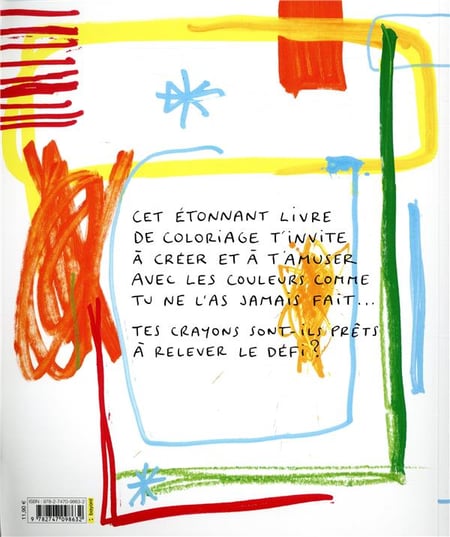 CET ÉTONNANT LIVRE
DE COLORIAGE T'INVITE
À CRÉER ET À T'AMUSER
AVEC LES COULEURS COMME
TU NE L'AS JAMAIS FAIT...
TES CRAYONS SONT-ILS PRÊTS
À RELEVER LE DÉFI ?
ISBN : 978-2-7470-9863-2
11,90 €
9 782747 098632
bayard